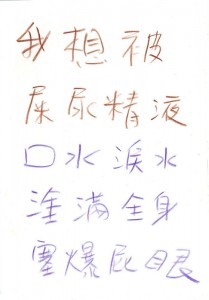 我想被
屎尿精液
口水淚水
塗滿全身
塞爆屁眼